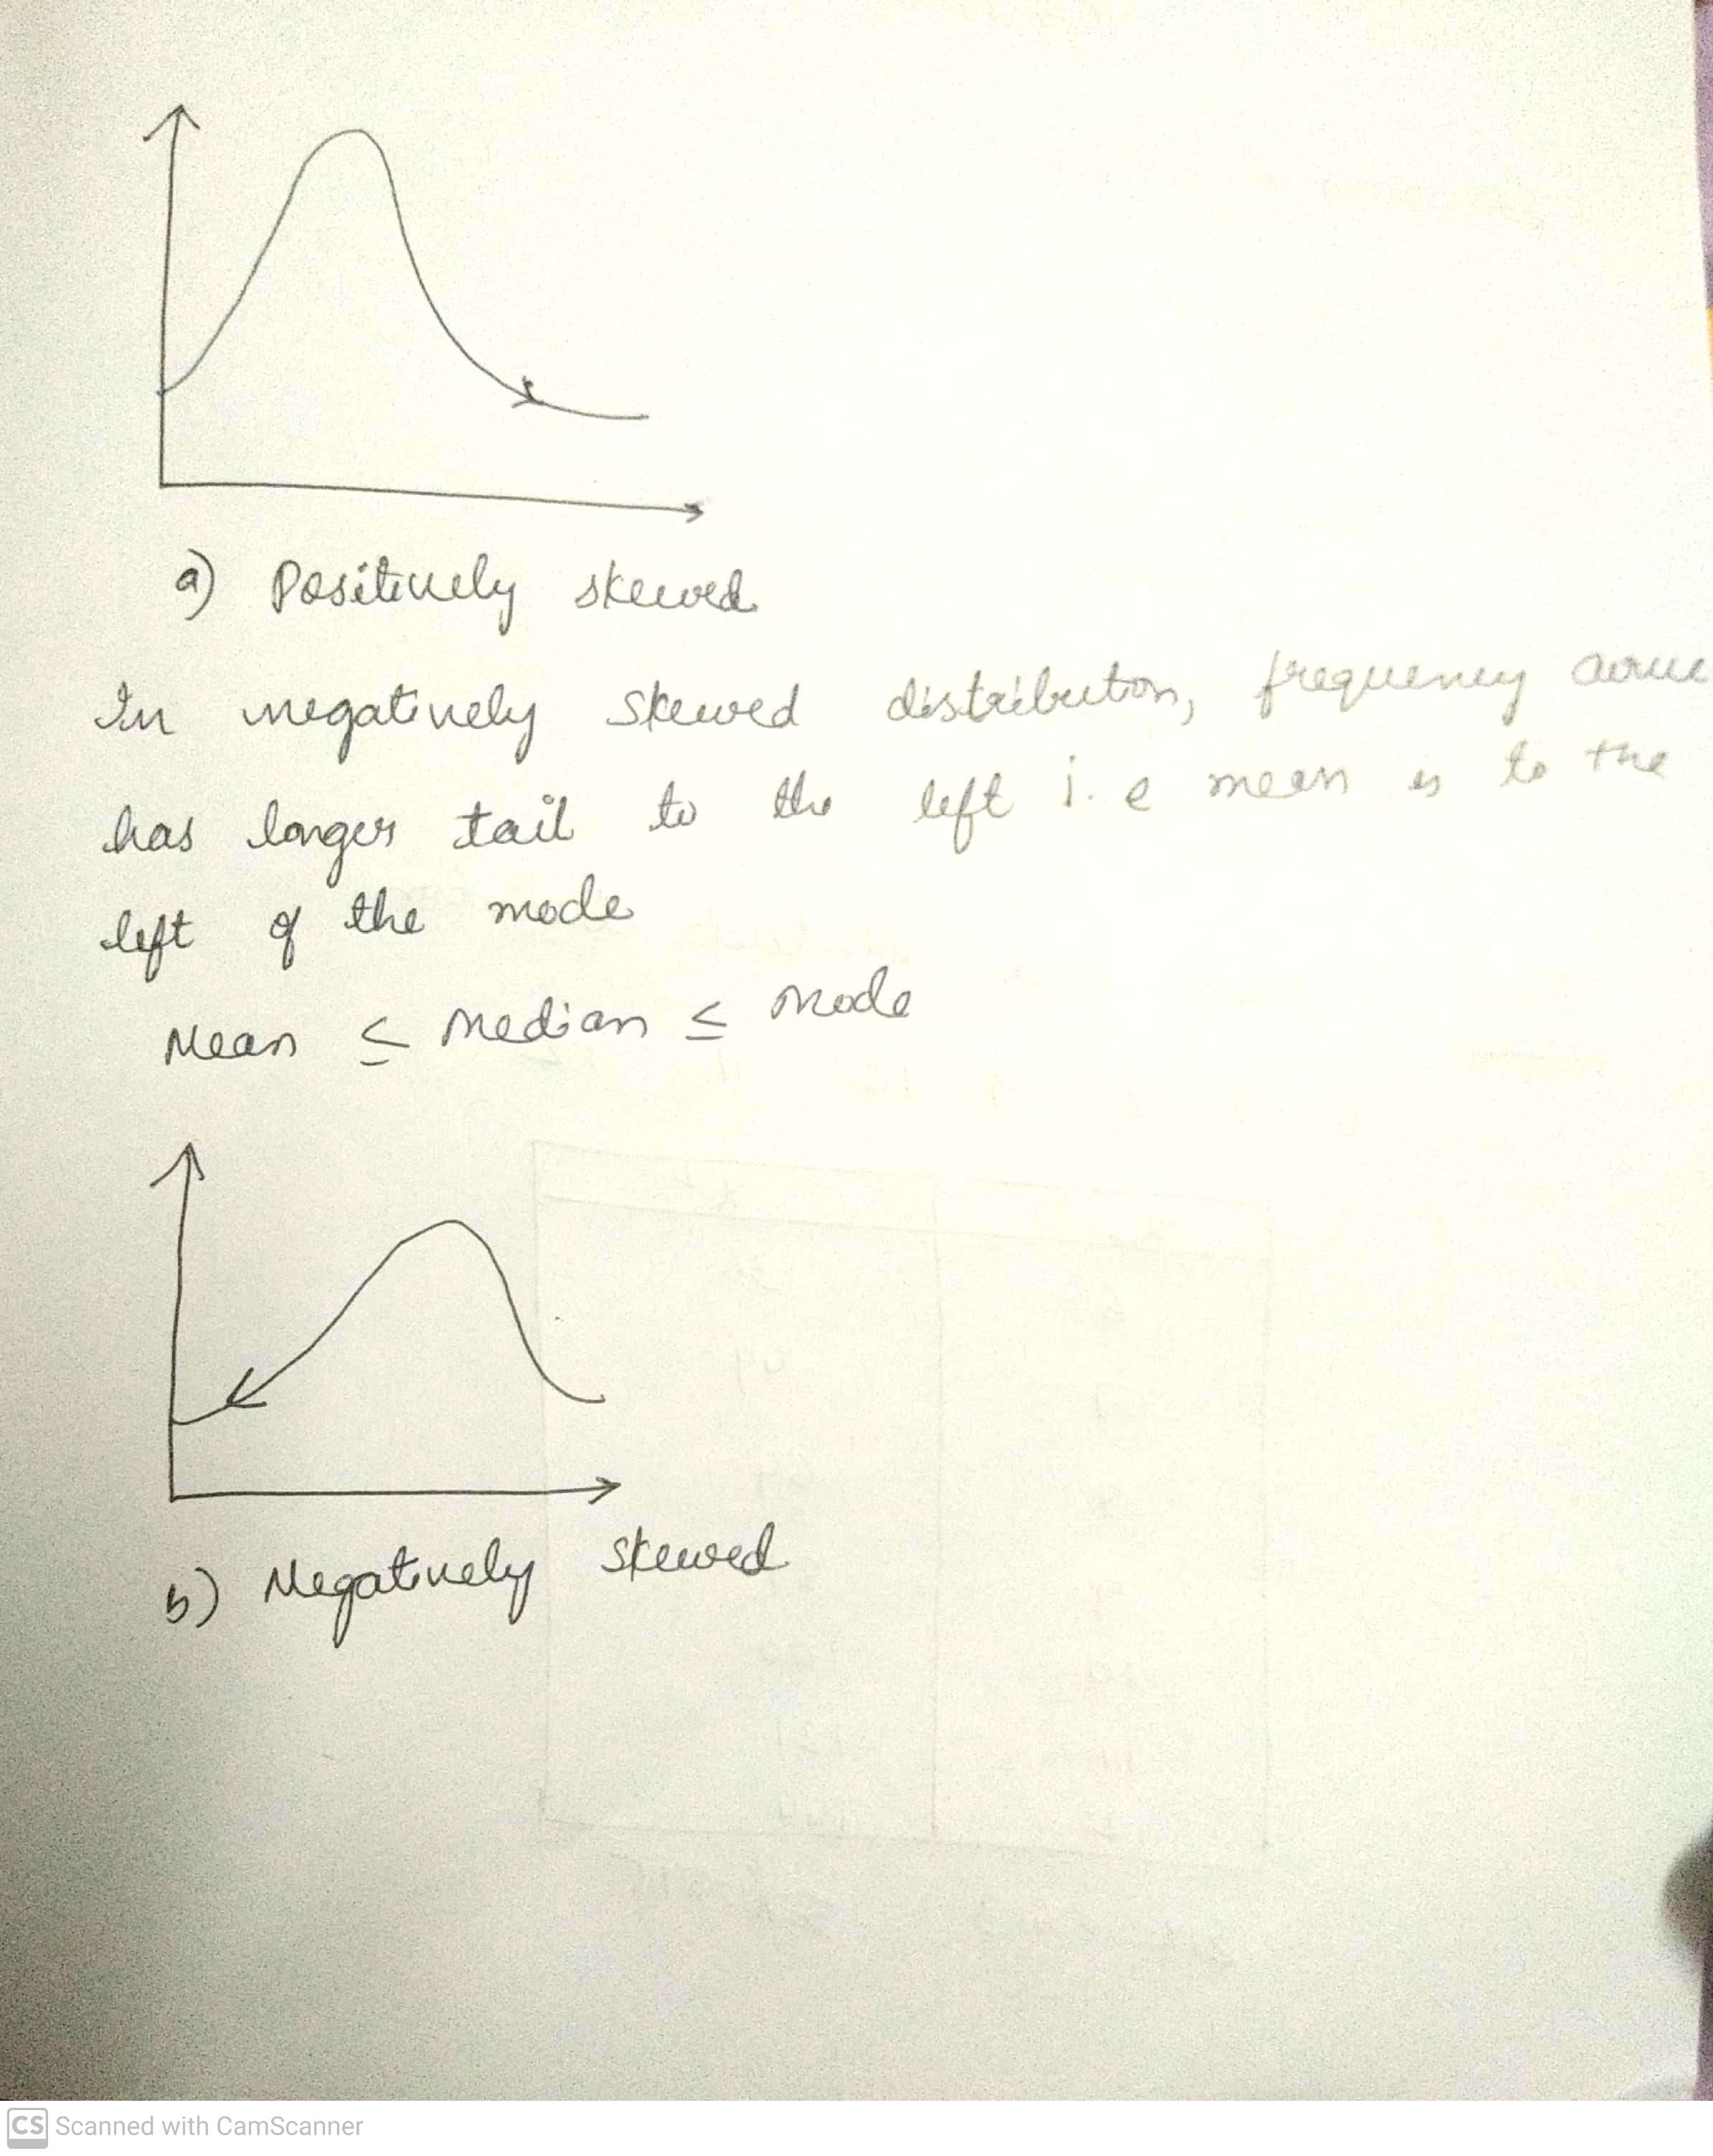 a) Positively skewed
In negatively skewed distribution, frequency curve
has longer tail to the left i.e mean is to the
left of the mode
Mean ≤ Median ≤ Mode
b) Negatively skewed
CS Scanned with CamScanner